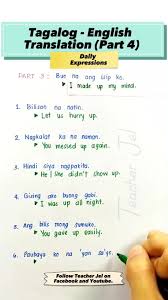 Tagalog - English
Translation (Part 4)
Daily
Expressions
PART 3: Buo na ang isip ko.
I made up my mind.
1. Bilisan na natin.
Let's hurry up.
2. Nagkalat ka na naman.
You messed up again.
3. Hindi siya nagpakita.
He | She didn't show up.
4. Gising ako buong gabi.
I was up all night.
5. Ang bilis mong sumuko.
You gave up easily.
6. Paubaya ko na 'yan sa'yo.
Teacher Jel
Follow Teacher Jel on
Facebook and Youtube.